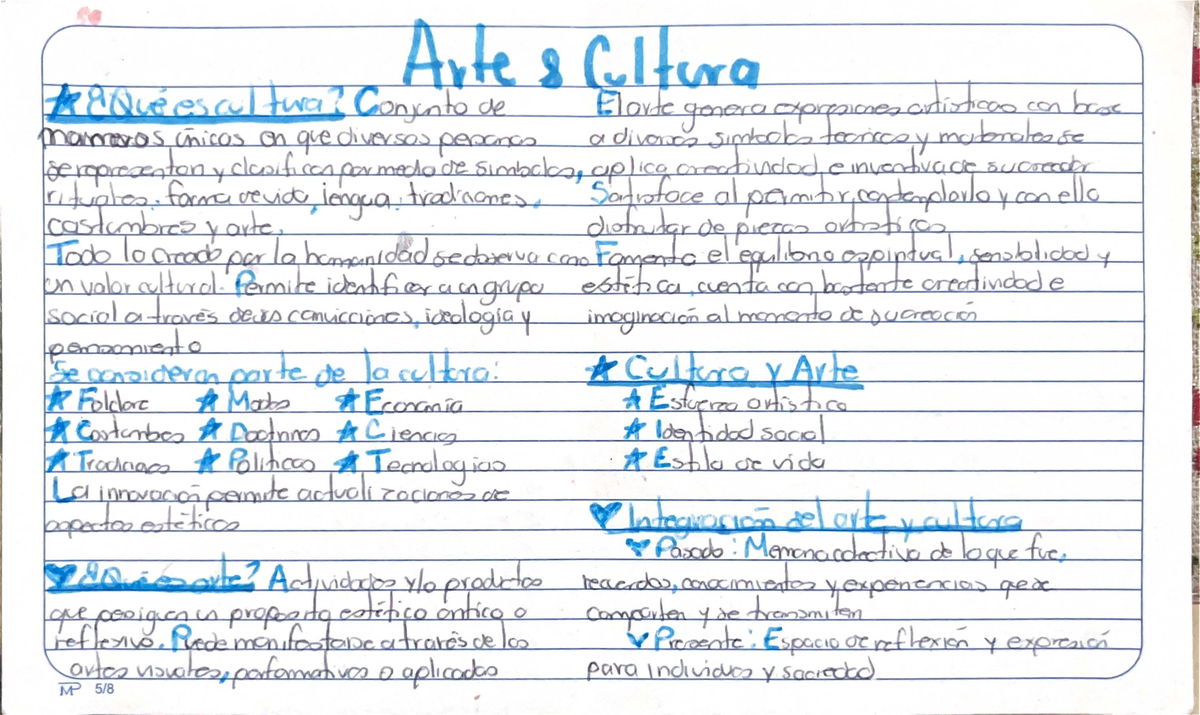 Arte & Cultura
★ ¿Qué es cultura? Conjunto de
maneras únicas en que diversas personas
se representan y clasifican por medio de simbolos,
rituales, forma de vida, lengua, tradiciones,
costumbres y arte.
Todo lo creado por la humanidad se observa como
un valor cultural. Permite identificar a un grupo
social a través de sus convicciones, ideología y
pensamiento
Se consideran parte de la cultura:
★ Folclore ★ Modas ★ Economía
★ Costumbes ★ Doctrinas ★ Ciencias
★ Tradiciones ★ Políticas ★ Tecnologías
La innovación permite actualizaciones de
aspectos estéticos
♥ ¿Qué es arte? Actividades y/o productos
que persiguen un proposito estético óntico o
reflexivo. Puede manifestarse a través de las
artes visuales, performativas o aplicadas
El arte genera expresiones artísticas con base
a diversos simbolos teóricos y materiales se
aplica creatividad e inventiva de su creador
Satisface al permitir contemplarlo y con ello
disfrutar de piezas artísticas
Fomenta el equilibrio espiritual, sensibilidad y
estética, cuenta con bastante creatividad e
imaginación al momento de su creación
★ Cultura y Arte
★ Esfuerzo artístico
★ Identidad social
★ Estilo de vida
♥ Integración del arte y cultura
♥ Pasado: Memoria colectiva de lo que fue,
recuerdos, conocimientos y experiencias que se
comparten y se transmiten
♥ Presente: Espacio de reflexión y expresión
para individuos y sociedad
MP 5/8